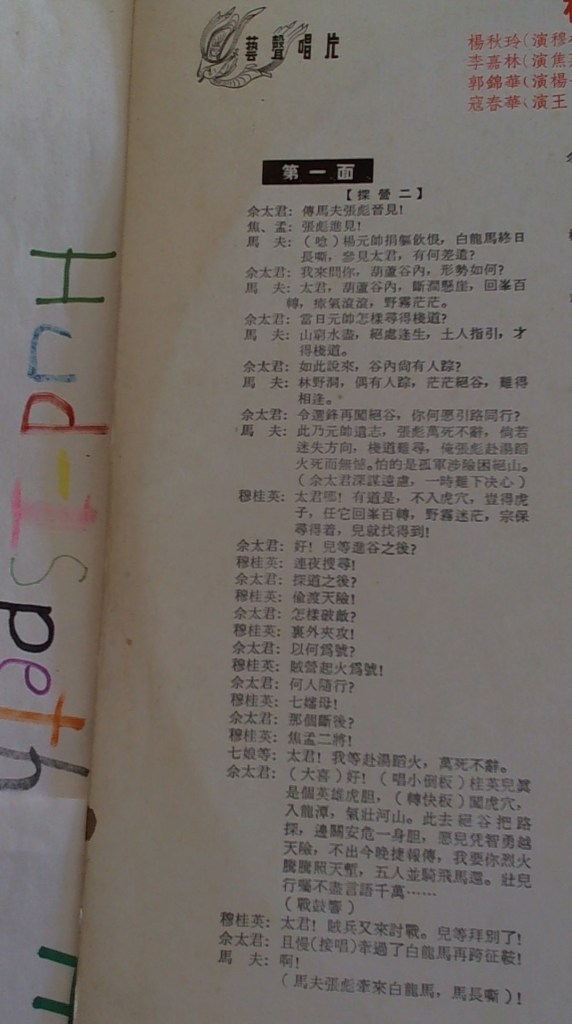 藝聲唱片
楊秋玲(演穆
李嘉林(演焦
郭錦華(演楊
寇春華(演王
第一面
【探營二】
佘太君：傳馬夫張彪晉見！
焦、孟：張彪進見！
馬　夫：(唸)楊元帥捐軀飲恨，白龍馬終日
長嘶，參見太君，有何差遣？
佘太君：我來問你，葫蘆谷內，形勢如何？
馬　夫：太君，葫蘆谷內，斷澗懸崖，回峯百
轉，瘴氣滾滾，野霧茫茫。
佘太君：當日元帥怎樣尋得棧道？
馬　夫：山窮水盡，絕處逢生，土人指引，才
得棧道。
佘太君：如此說來，谷內尙有人踪？
馬　夫：林野澗，偶有人踪，茫茫絕谷，難得
相逢。
佘太君：令選鋒再闖絕谷，你何愿引路同行？
馬　夫：此乃元帥遺志，張彪萬死不辭，倘若
迷失方向，棧道難尋，俺張彪赴湯蹈
火死而無憾。怕的是孤軍涉險困絕山。
(佘太君深謀遠慮，一時難下决心)
穆桂英：太君哪！有道是，不入虎穴，豈得虎
子，任它回峯百轉，野霧迷茫，宗保
尋得着，兒就找得到！
佘太君：好！兒等進谷之後？
穆桂英：連夜搜尋！
佘太君：探道之後？
穆桂英：偸渡天險！
佘太君：怎樣破敵？
穆桂英：裏外夾攻！
佘太君：以何爲號？
穆桂英：賊營起火爲號！
佘太君：何人隨行？
穆桂英：七嬸母！
佘太君：那個斷後？
穆桂英：焦孟二將！
七娘等：太君！我等赴湯蹈火，萬死不辭。
佘太君：(大喜)好！(唱小倒板)桂英兒眞
是個英雄虎胆，(轉快板)闖虎穴，
入龍潭，氣壯河山。此去絕谷把路
探，邊關安危一身胆，愿兒凭智勇越
天險，不出今晚捷報傳，我要你烈火
騰騰照天塹，五人並騎飛馬還。壯兒
行囑不盡言語千萬……
(戰鼓響)
穆桂英：太君！賊兵又來討戰。兒等拜別了！
佘太君：且慢(接唱)牽過了白龍馬再跨征鞍！
馬　夫：啊！
(馬夫張彪牽來白龍馬，馬長嘶)！
Hud-Ispeth